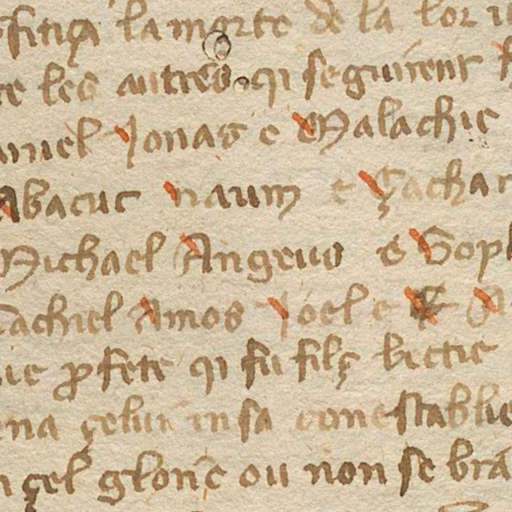 fitiça la morte de la lor
re les autres qi seguirent
aniel Jonas e Malachie
Abacuc naum e Çachar
Michael Angeus e Soph
çachiel Amos Joel e
ie profete qi fu filç bectie
ena çelui in sa conestablie
çel glorie ou non se bra